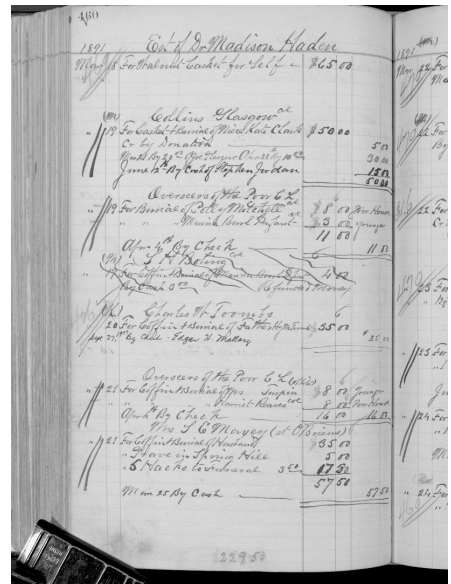 460
1891 Est of Dr Madison Haden
Mar 18 For Walnut Casket for Self $65 00
Collins Glasgow col
" 19 For Casket & Burial of Niece Kate Clark $50 00
Cr by Donation 5 00
30 00
June 12th By Cash of Stephen Jordan 15 00
50 00
Overseers of the Poor C L
" 19 For Burial of Mitchell $8 00 Poor House
" " " Burl Infant $3 00 Younger
11 00
Apr 4th By Check 11 00
S H Boling col
For Coffin & Burial of 4 00
By Cash Refunded Money
Charles W Toombs
20 For Coffin & Burial of Father 35 00
Sept 27 1892 By Check Edgar W. Mallory $35 00
Overseers of the Poor C L
" 21 For Coffin & Burial of Mrs Turpin $8 00 Younger
" " " Harriet Reaves col 8 00 Poor House
Apr 4th By Check 16 00 16 00
Mrs S E Maxey (at O'Briens)
" 21 For Coffin & Burial of Husband $35 00
" Grave in Spring Hill 5 00
" 5 Hacks to Funeral 3 50 17 50
57 50
Mar 25 By Cash 57 50
229 50
1891
Mar 22 For
22 For
By
22 For
Cr
23 For
23 For
24 For
24 For